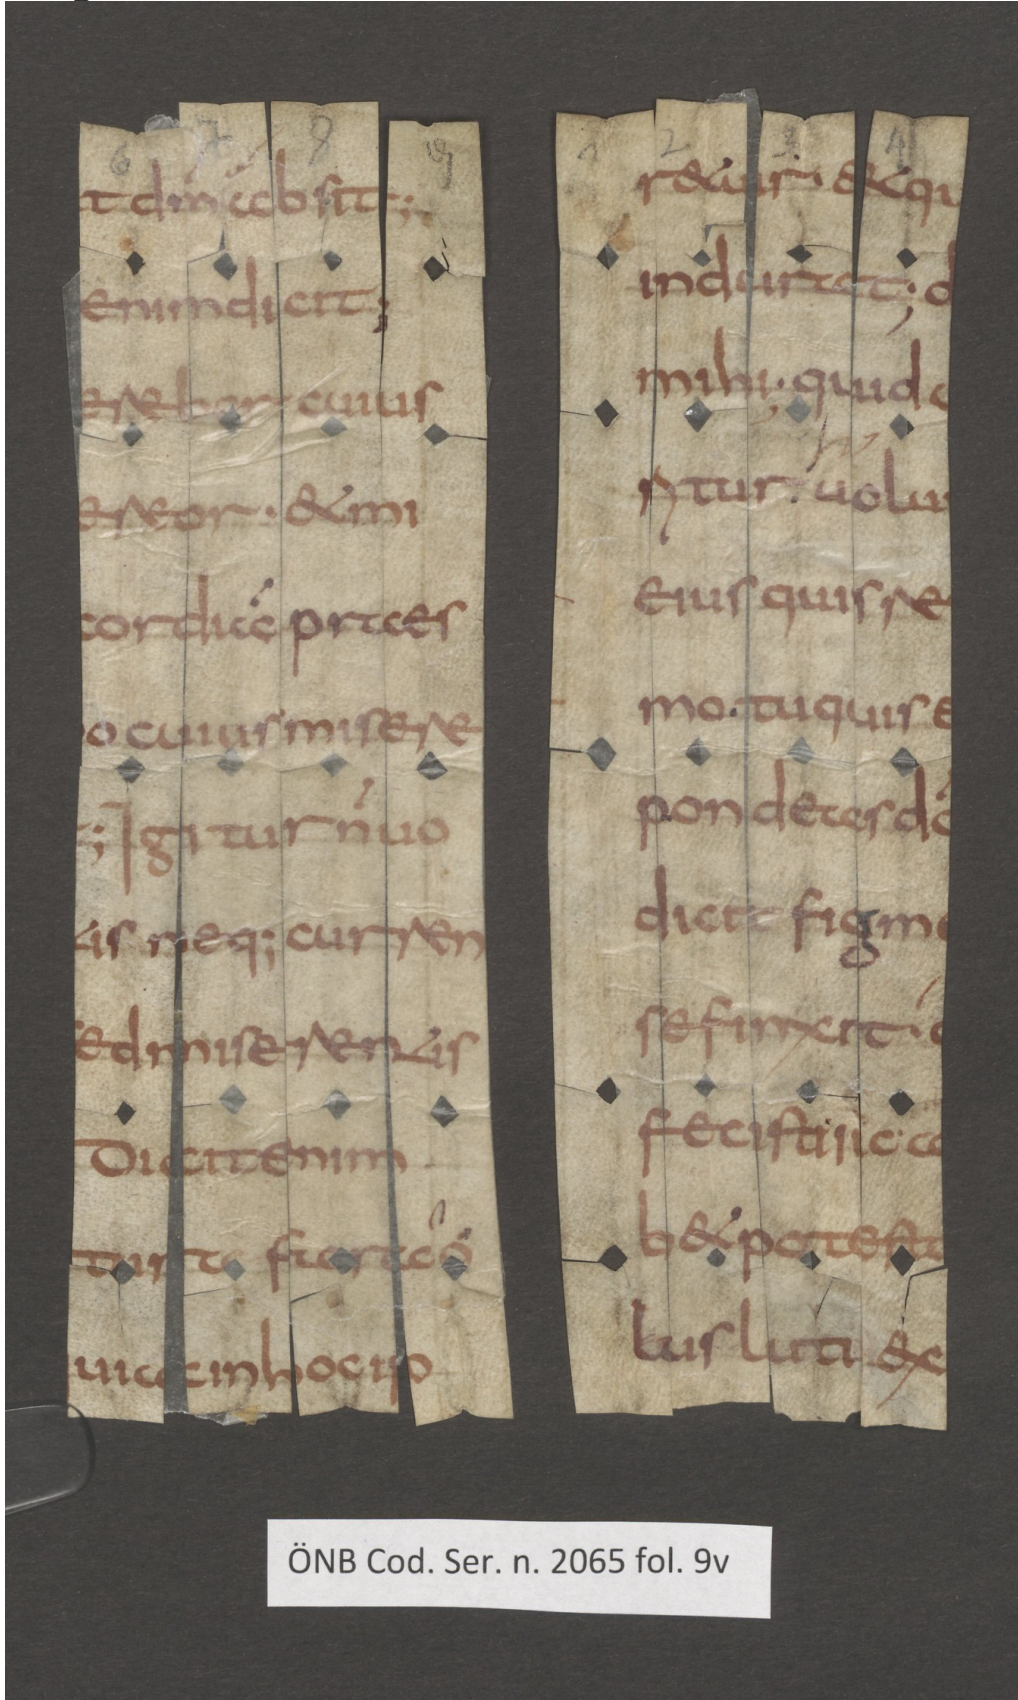 6 7 8 9
t dm̄ absit;
enim dicit;
erebor cuius
ereor · & mi
cordiā praes
o cuius misere
; Igitur n̄ uo
tis neq; curren
ed miserentis
Dicit enim
tura farao
uia in hoc ip
1 2 3 4
r&ur · & qu
indurat; d
mihi; quid
ritur · uolu
eius quis re
mo · tu quis e
pondeas dō
dicit figme
se finxit ·
fecisti sic · a
b& potesta
lus luti ex
ÖNB Cod. Ser. n. 2065 fol. 9v